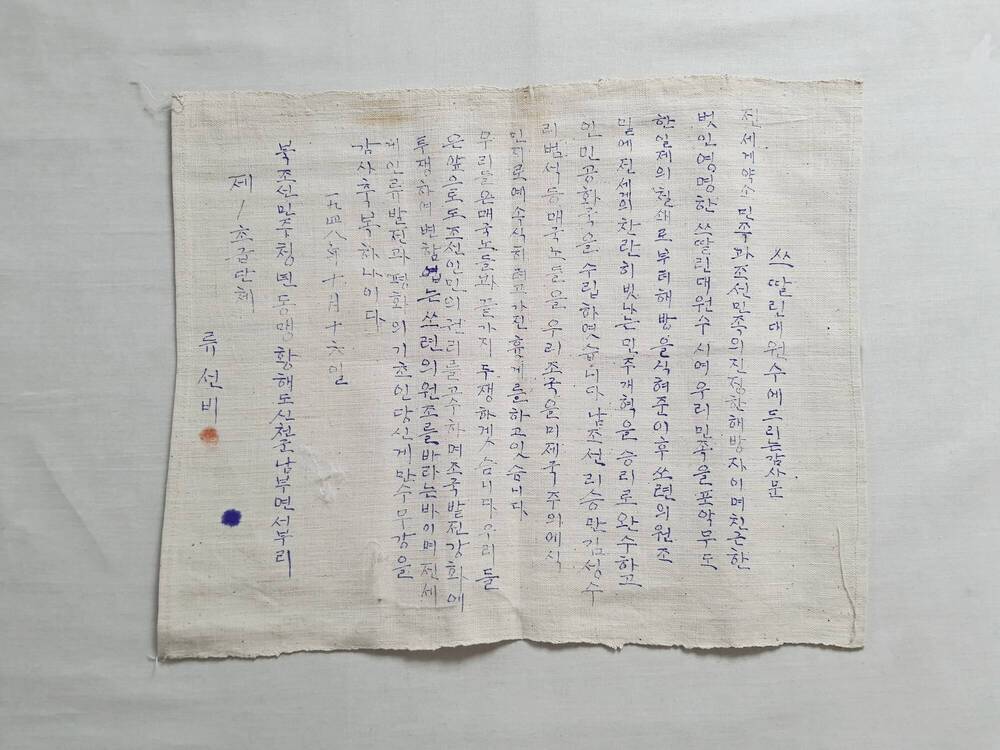 쓰딸린대원수에드리는감사문
전세게약소민족과조선민족의진정한해방자이며친근한
벗인영명한쓰딸린대원수시여우리민족을포악무도
한일제의철쇄로부터해방을식혀준이후쏘련의원조
밑에전세게의찬란히빗나는민주개혁을승리로완수하고
인민공화국을수립하엿습니다남조선리승만김성수
리범석등매국노들을우리조국을미제국주의에식
민지로예속식히려고가진흉게를하고잇습니다
우리들은매국노들과끝가지투쟁하겟습니다우리들
은앞으로도조선인민의권리를고수하며조국발전강화에
투쟁하며변참업는쏘련의원조를바라는바이며전세
게인류발전과평화의기초인당신게만수무강을
감사축복하나이다
一九四八年十月十六일
북조선민주청년동맹황해도신천군남부면서부리
제1초급단체
류선비